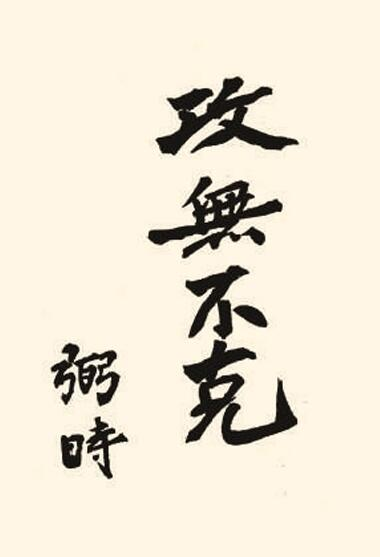 攻無不克
弼時